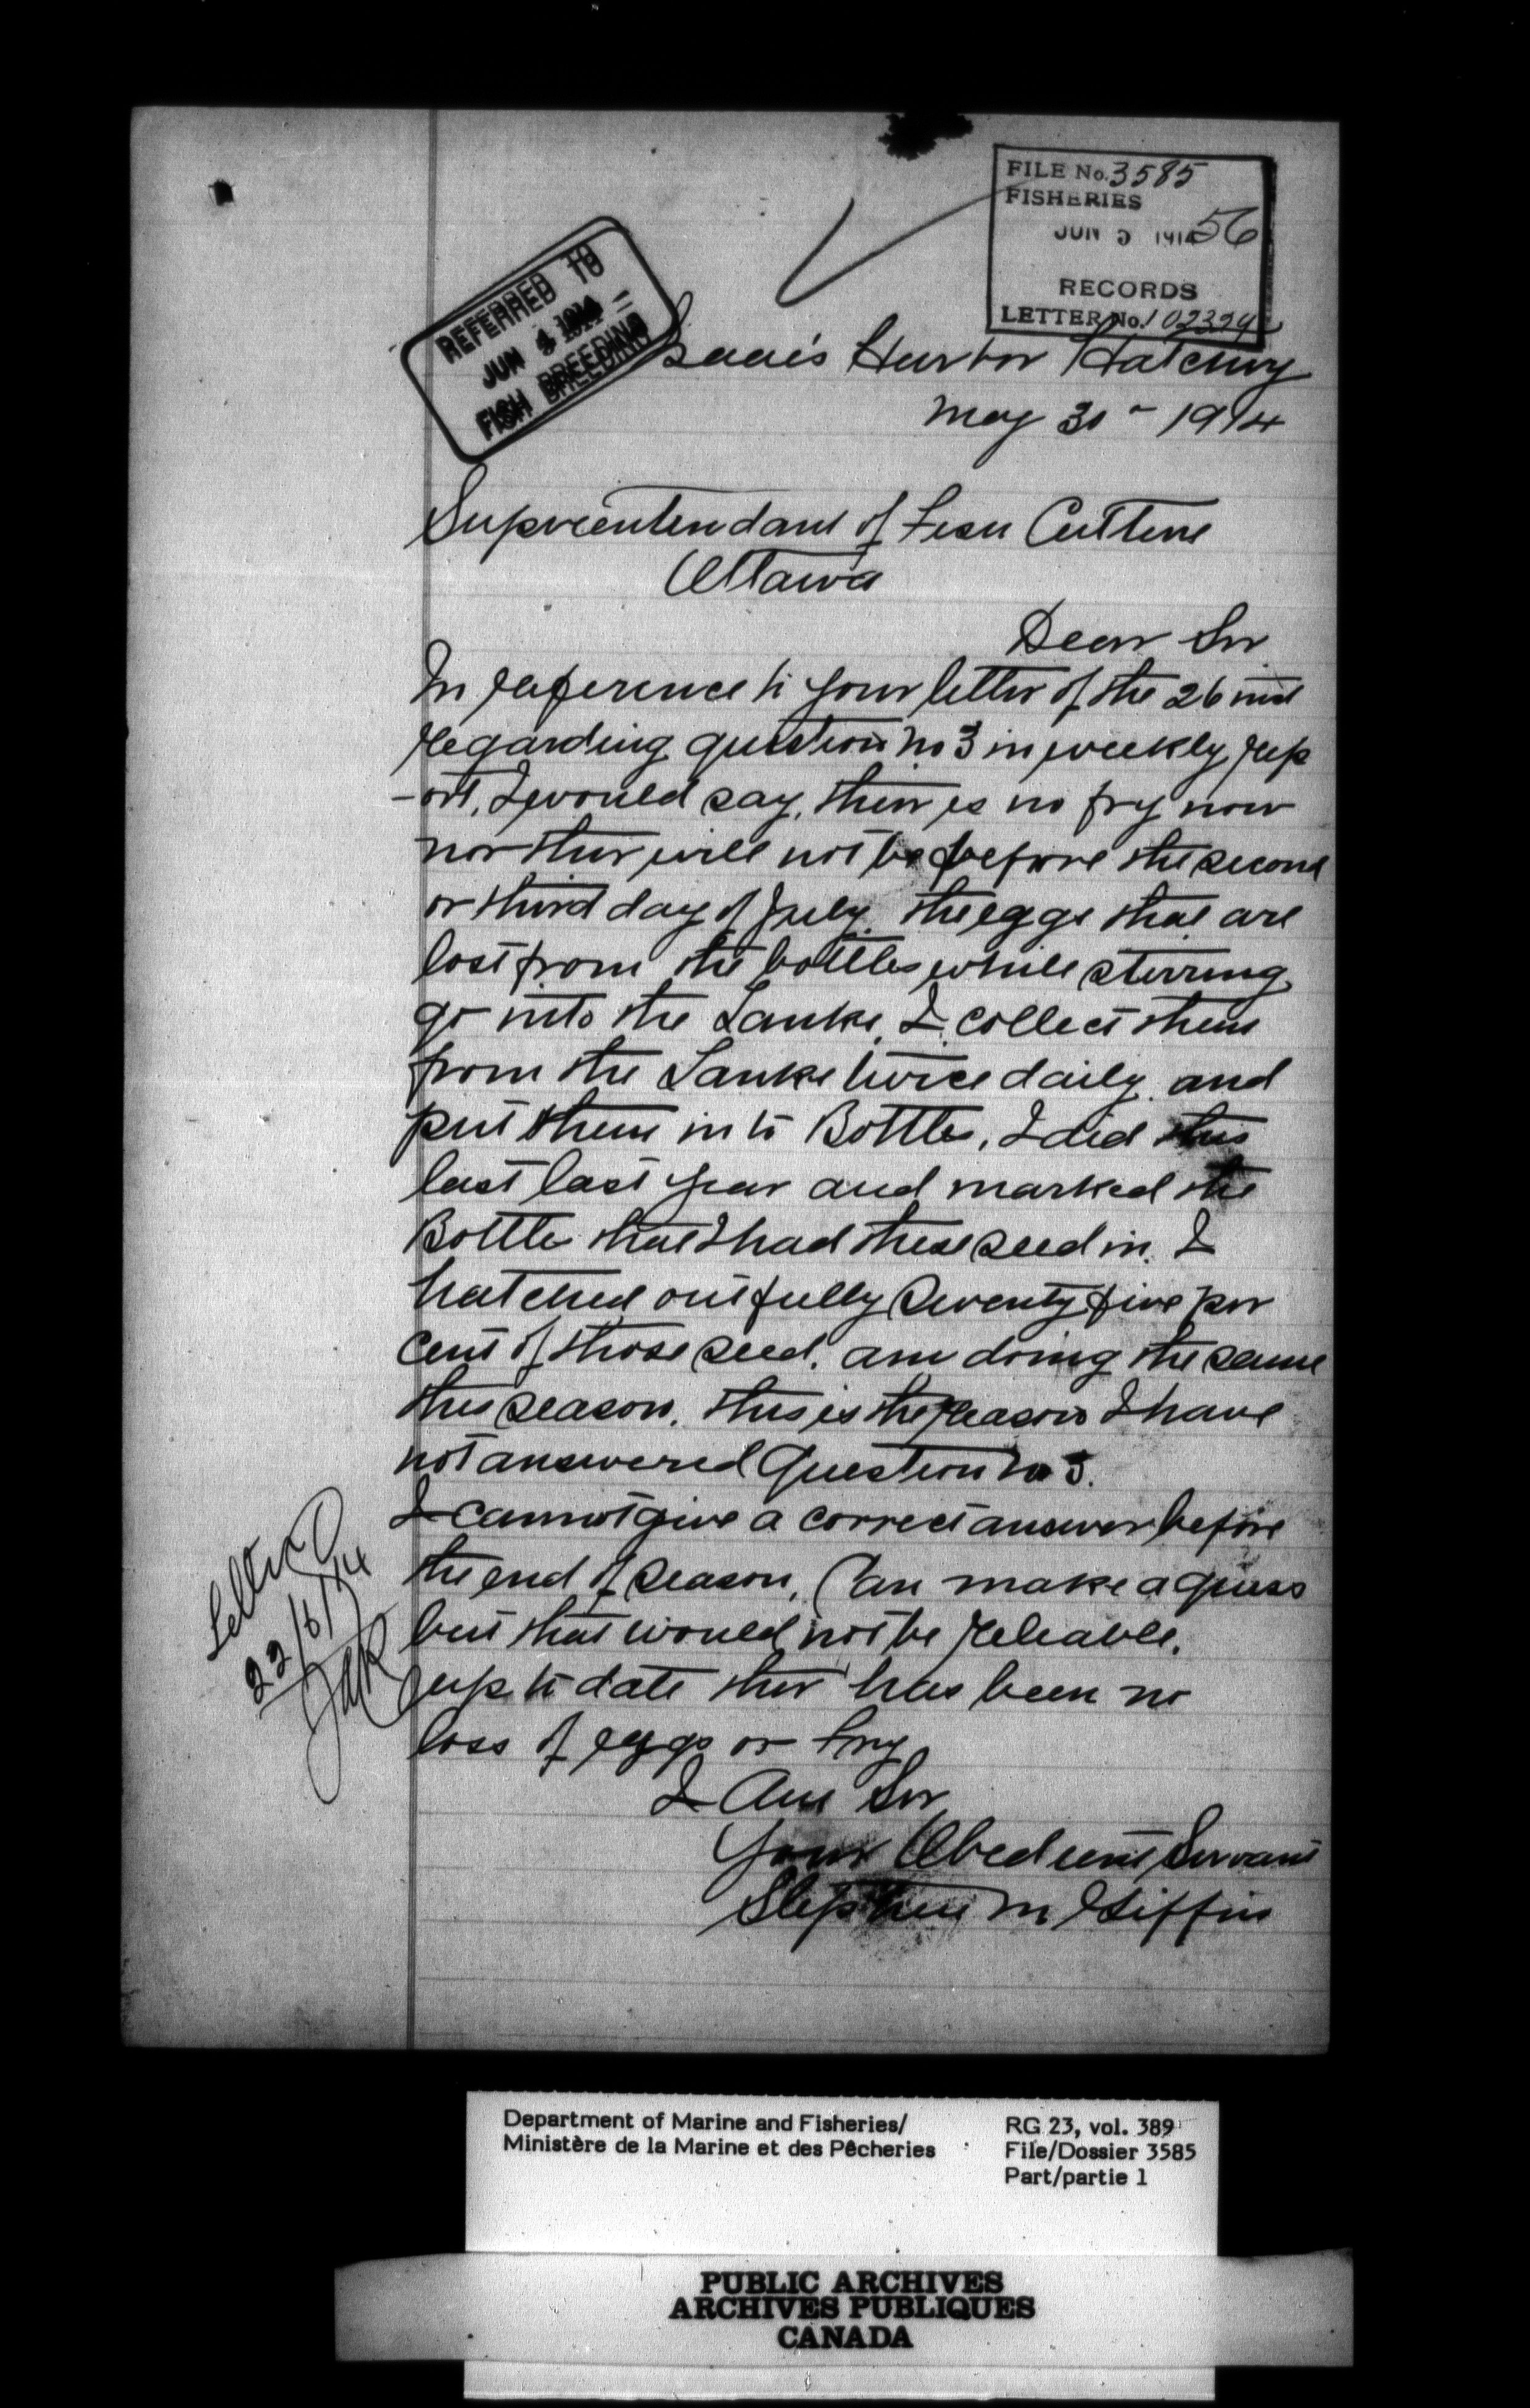 FILE No. 3585
FISHERIES
JUN 5 1914 56
RECORDS
LETTER No. 102324
REFERRED TO
JUN 4 1914
FISH BREEDING
Isaac's Harbor Hatchery
May 30 - 1914
Supreentendant of Fish Culture
Ottawa
Dear Sir
In reference to your letter of the 26 inst
regarding question no 3 in weekly rep
-ort, I would say, their is no fry now
nor their will not be before the second
or third day of July. the eggs that are
lost from the bottles while stirring
go into the Tanks, I collect them
from the Tanks twice daily and
put them in to Bottles, I did this
last last year and marked the
Bottle that I had these seed in. I
hatched out fully seventy five per
cent of those seed. am doing the same
this season. this is the reason I have
not answered Question no 3.
I cannot give a correct answer before
the end of season, Can make a guess
but that would not be reliable.
up to date their has been no
loss of eggs or fry
I Am Sir
Your Obedient Servant
Stephen M Giffin
Letter
22/6/14
Department of Marine and Fisheries/
Ministère de la Marine et des Pêcheries
RG 23, vol. 389
File/Dossier 3585
Part/partie 1
PUBLIC ARCHIVES
ARCHIVES PUBLIQUES
CANADA